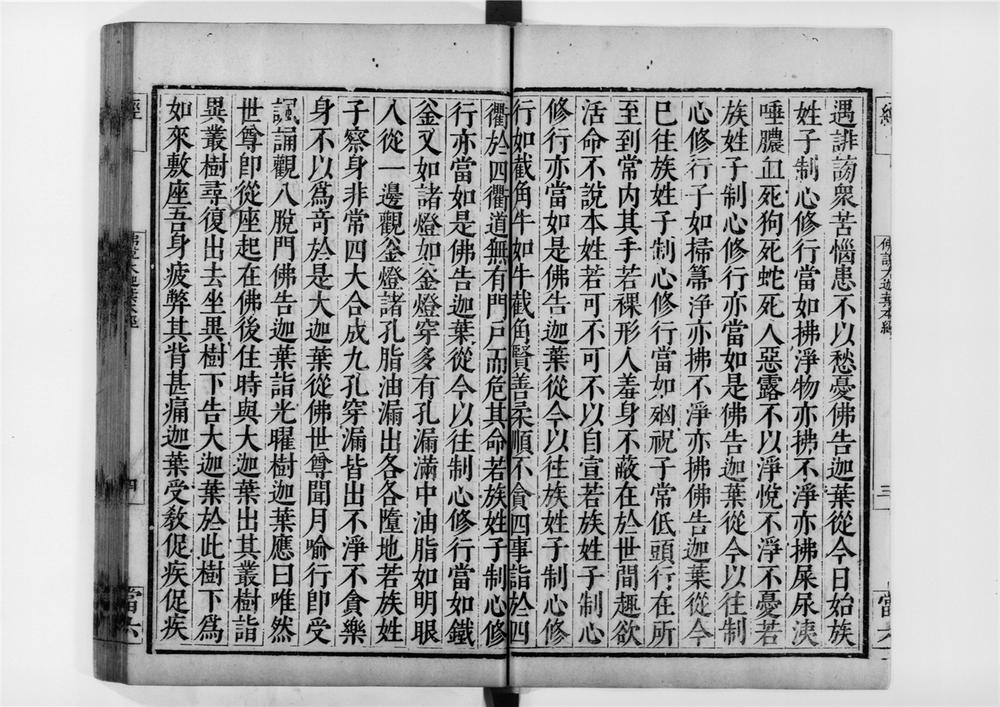 遇誹謗衆苦惱患不以愁憂佛告迦葉從今日始族
姓子制心修行當如拂淨物亦拂不淨亦拂屎尿洟
唾膿血死狗死蛇死人惡露不以淨悅不淨不憂若
族姓子制心修行亦當如是佛告迦葉從今以往制
心修行子如掃箒淨亦拂不淨亦拂佛告迦葉從今
已往族姓子制心修行當如 祝子常低頭行在所
至到常内其手若裸形人羞身不蔽在於世間趣欲
活命不說本姓若可不可不以自宣若族姓子制心
修行亦當如是佛告迦葉從今以往族姓子制心修
行如截角牛如牛截角賢善柔順不貪四事詣於四
衢於四衢道無有門戸而危其命若族姓子制心修
行亦當如是佛告迦葉從今以往制心修行當如鐵
釜又如諸燈如釜燈穿多有孔漏滿中油脂如明眼
人從一邊觀釜燈諸孔脂油漏出各各墮地若族姓
子察身非常四大合成九孔穿漏皆出不淨不貪樂
身不以爲竒於是大迦葉從佛世尊聞月喻行即受
諷誦觀八脫門佛告迦葉詣光曜樹迦葉應曰唯然
世尊即從座起在佛後住時與大迦葉出其叢樹詣
異叢樹尋復出去坐異樹下告大迦葉於此樹下爲
如來敷座吾身疲弊其背甚痛迦葉受敎促疾促疾
經
佛說大迦葉本經
三
四
當六